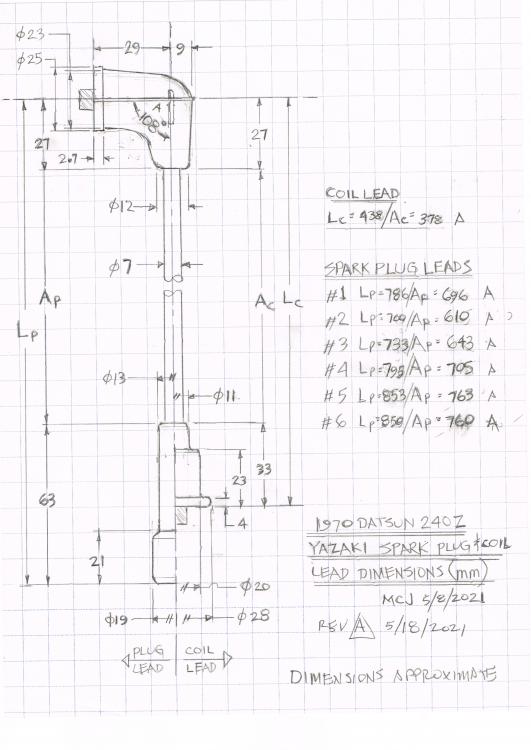 φ23
29
9
φ25
27
2.7
4
108°
27
φ12
φ7
Ap
Lp
Ac
Lc
φ13
φ11
63
21
23
33
4
φ20
φ19
φ28
PLUG LEAD
COIL LEAD
COIL LEAD
Lc = 438/Ac = 378 A
SPARK PLUG LEADS
#1 Lp=786/Ap = 696 A
#2 Lp=700/Ap = 610 A
#3 Lp=733/Ap = 643 A
#4 Lp=795/Ap = 705 A
#5 Lp=853/Ap = 763 A
#6 Lp=850/Ap = 760 A
1970 DATSUN 240Z
YAZAKI SPARK PLUG & COIL
LEAD DIMENSIONS (mm)
MCJ 5/8/2021
REV A 5/18/2021
DIMENSIONS APPROXIMATE